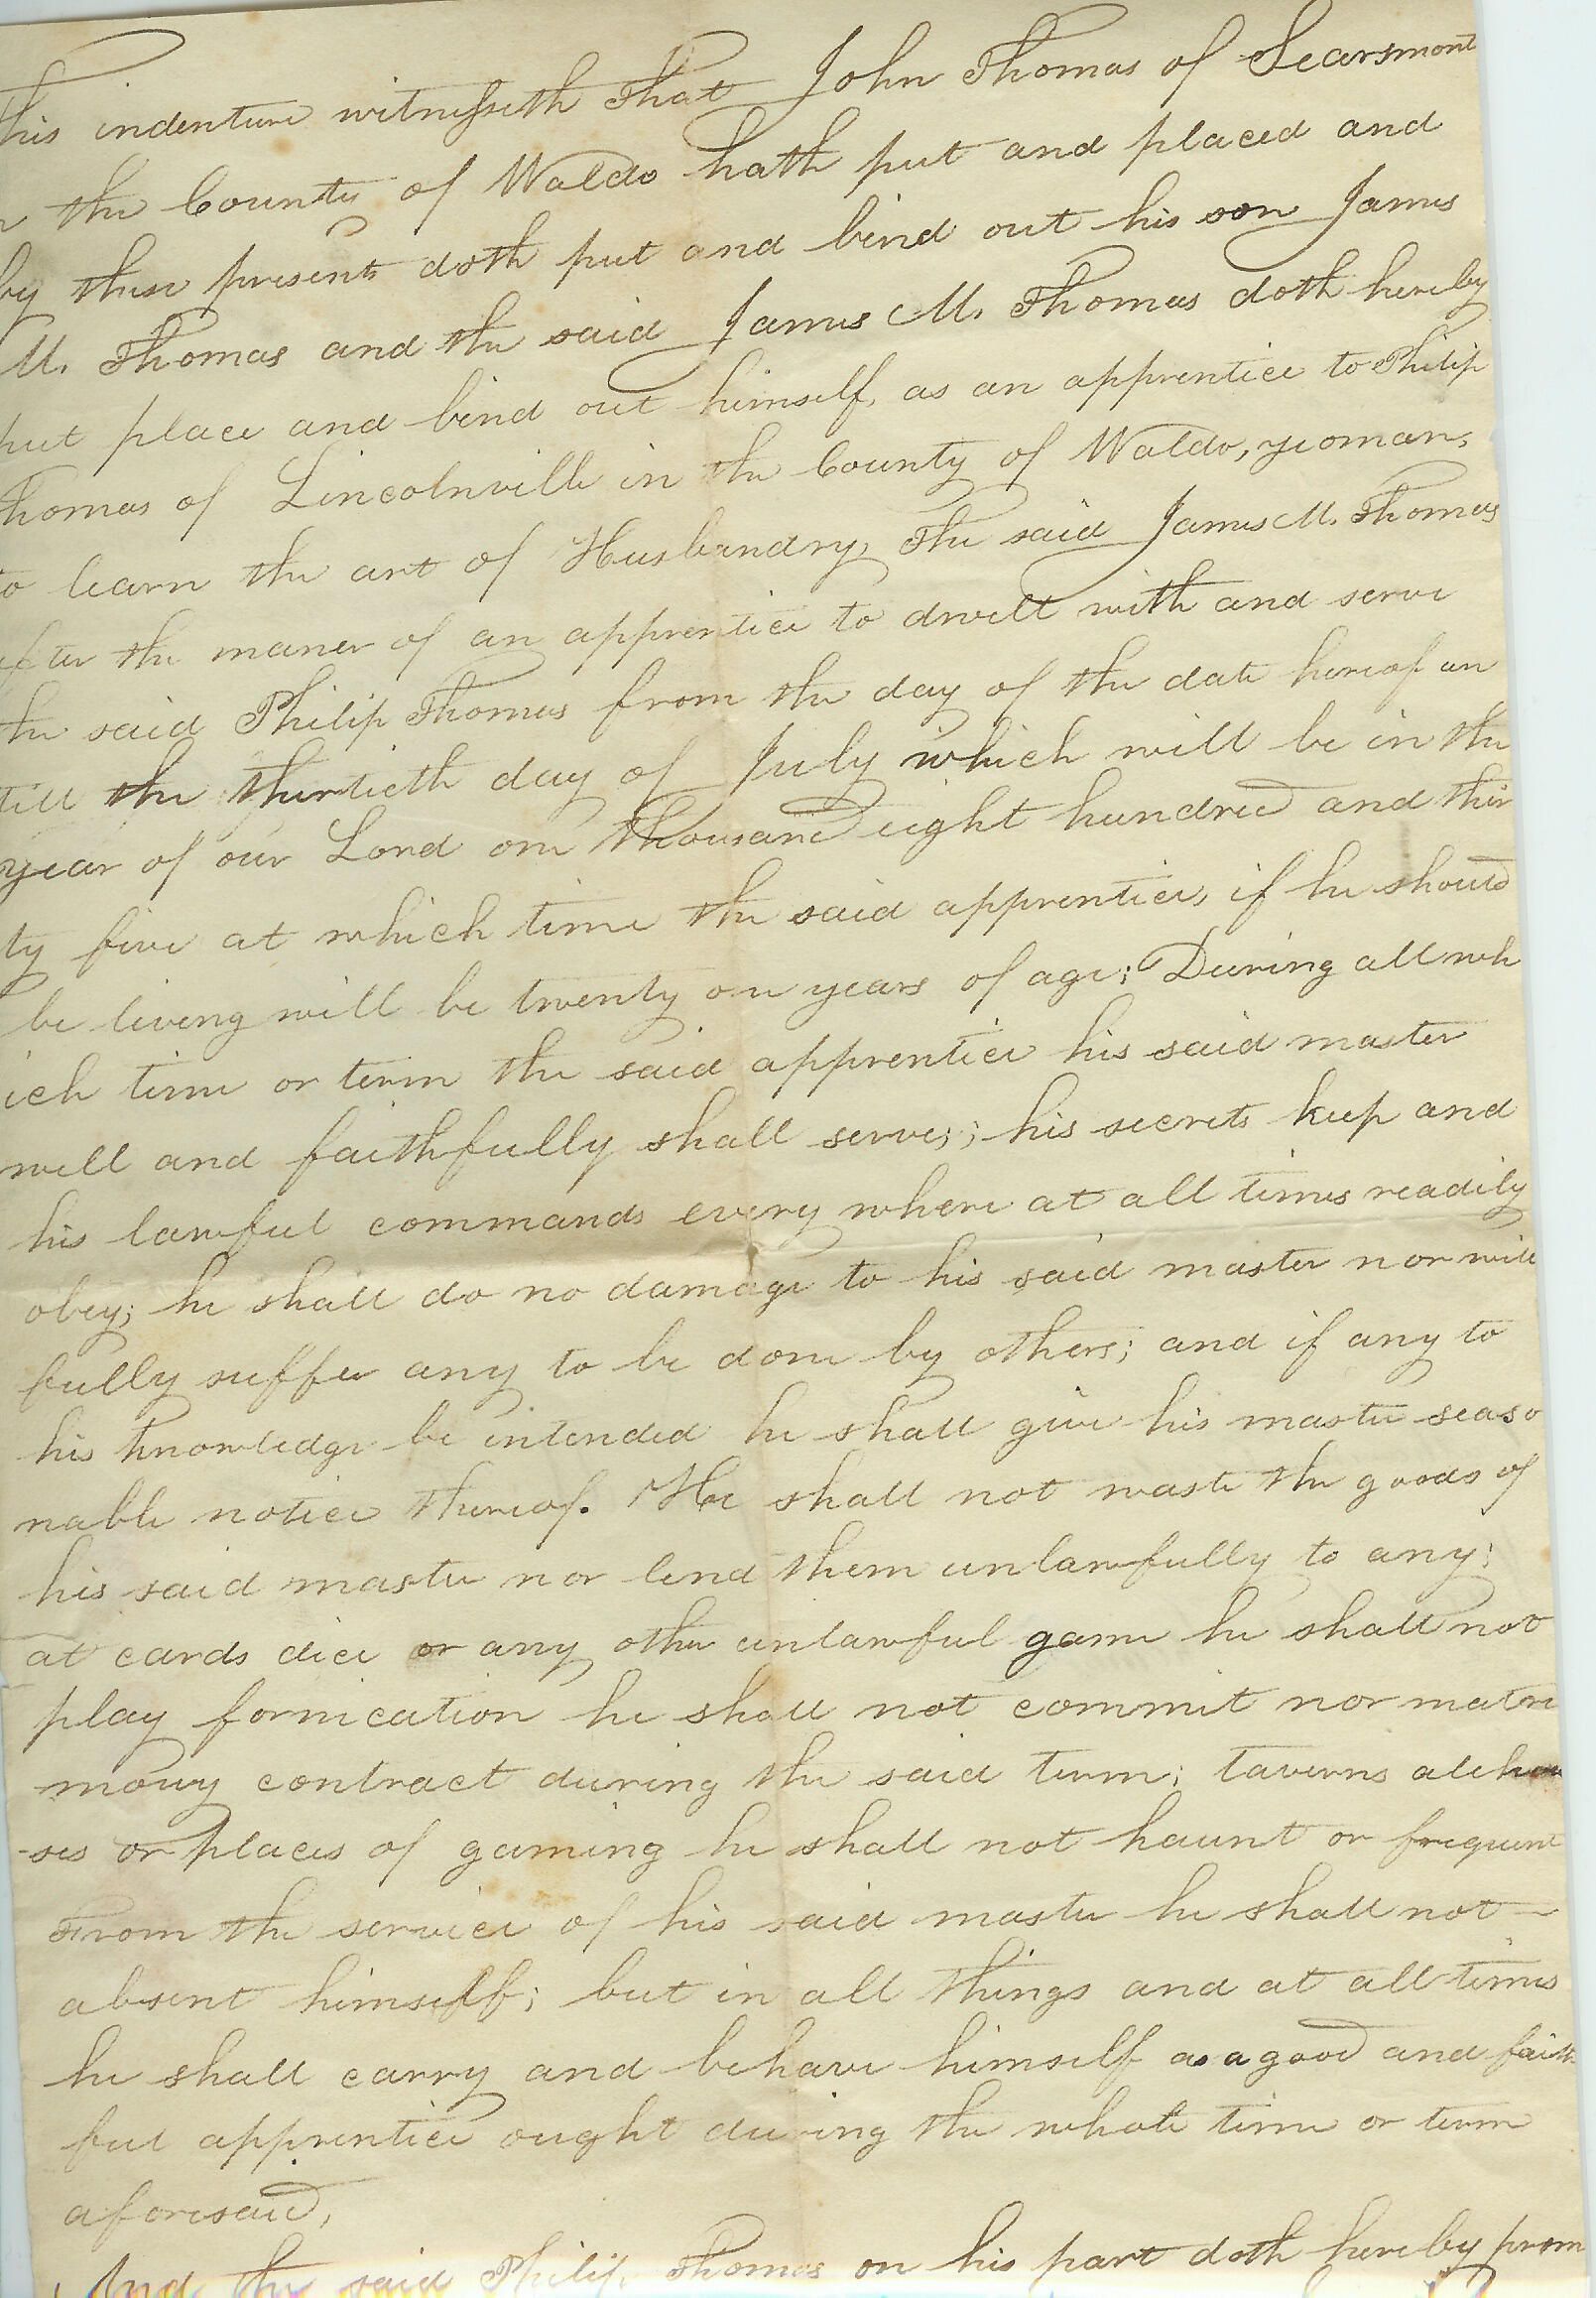 This indenture witnesseth That John Thomas of Searsmont
n the County of Waldo hath put and placed and
by these presents doth put and bind out his son James
M. Thomas and the said James M. Thomas doth hereby
put place and bind out himself, as an apprentice to Philip
Thomas of Lincolnville in the County of Waldo, yeoman,
to learn the art of Husbandry, The said James M. Thomas
after the maner of an apprentice to dwell with and serve
the said Philip Thomas from the day of the date hereof un
till the thirtieth day of July which will be in the
year of our Lord one thousand eight hundred and thir
ty five at which time the said apprentice, if he should
be living will be twenty one years of age; During all wh
ich time or term the said apprentice his said master
well and faithfully shall serve; his secrets keep and
his lawful commands every where at all times readily
obey; he shall do no damage to his said master nor will
fully suffer any to be done by others; and if any to
his knowledge be intended he shall give his master seaso
nable notice thereof. He shall not waste the goods of
his said master nor lend them unlawfully to any;
at cards dice or any other unlawful game he shall not
play fornication he shall not commit nor matri
mony contract during the said term; taverns alehou
-ses or places of gaming he shall not haunt or frequent
From the service of his said master he shall not
absent himself; but in all things and at all times
he shall carry and behave himself as a good and faith
ful apprentice ought during the whole time or term
aforesaid,
And the said Philip Thomas on his part doth hereby prom